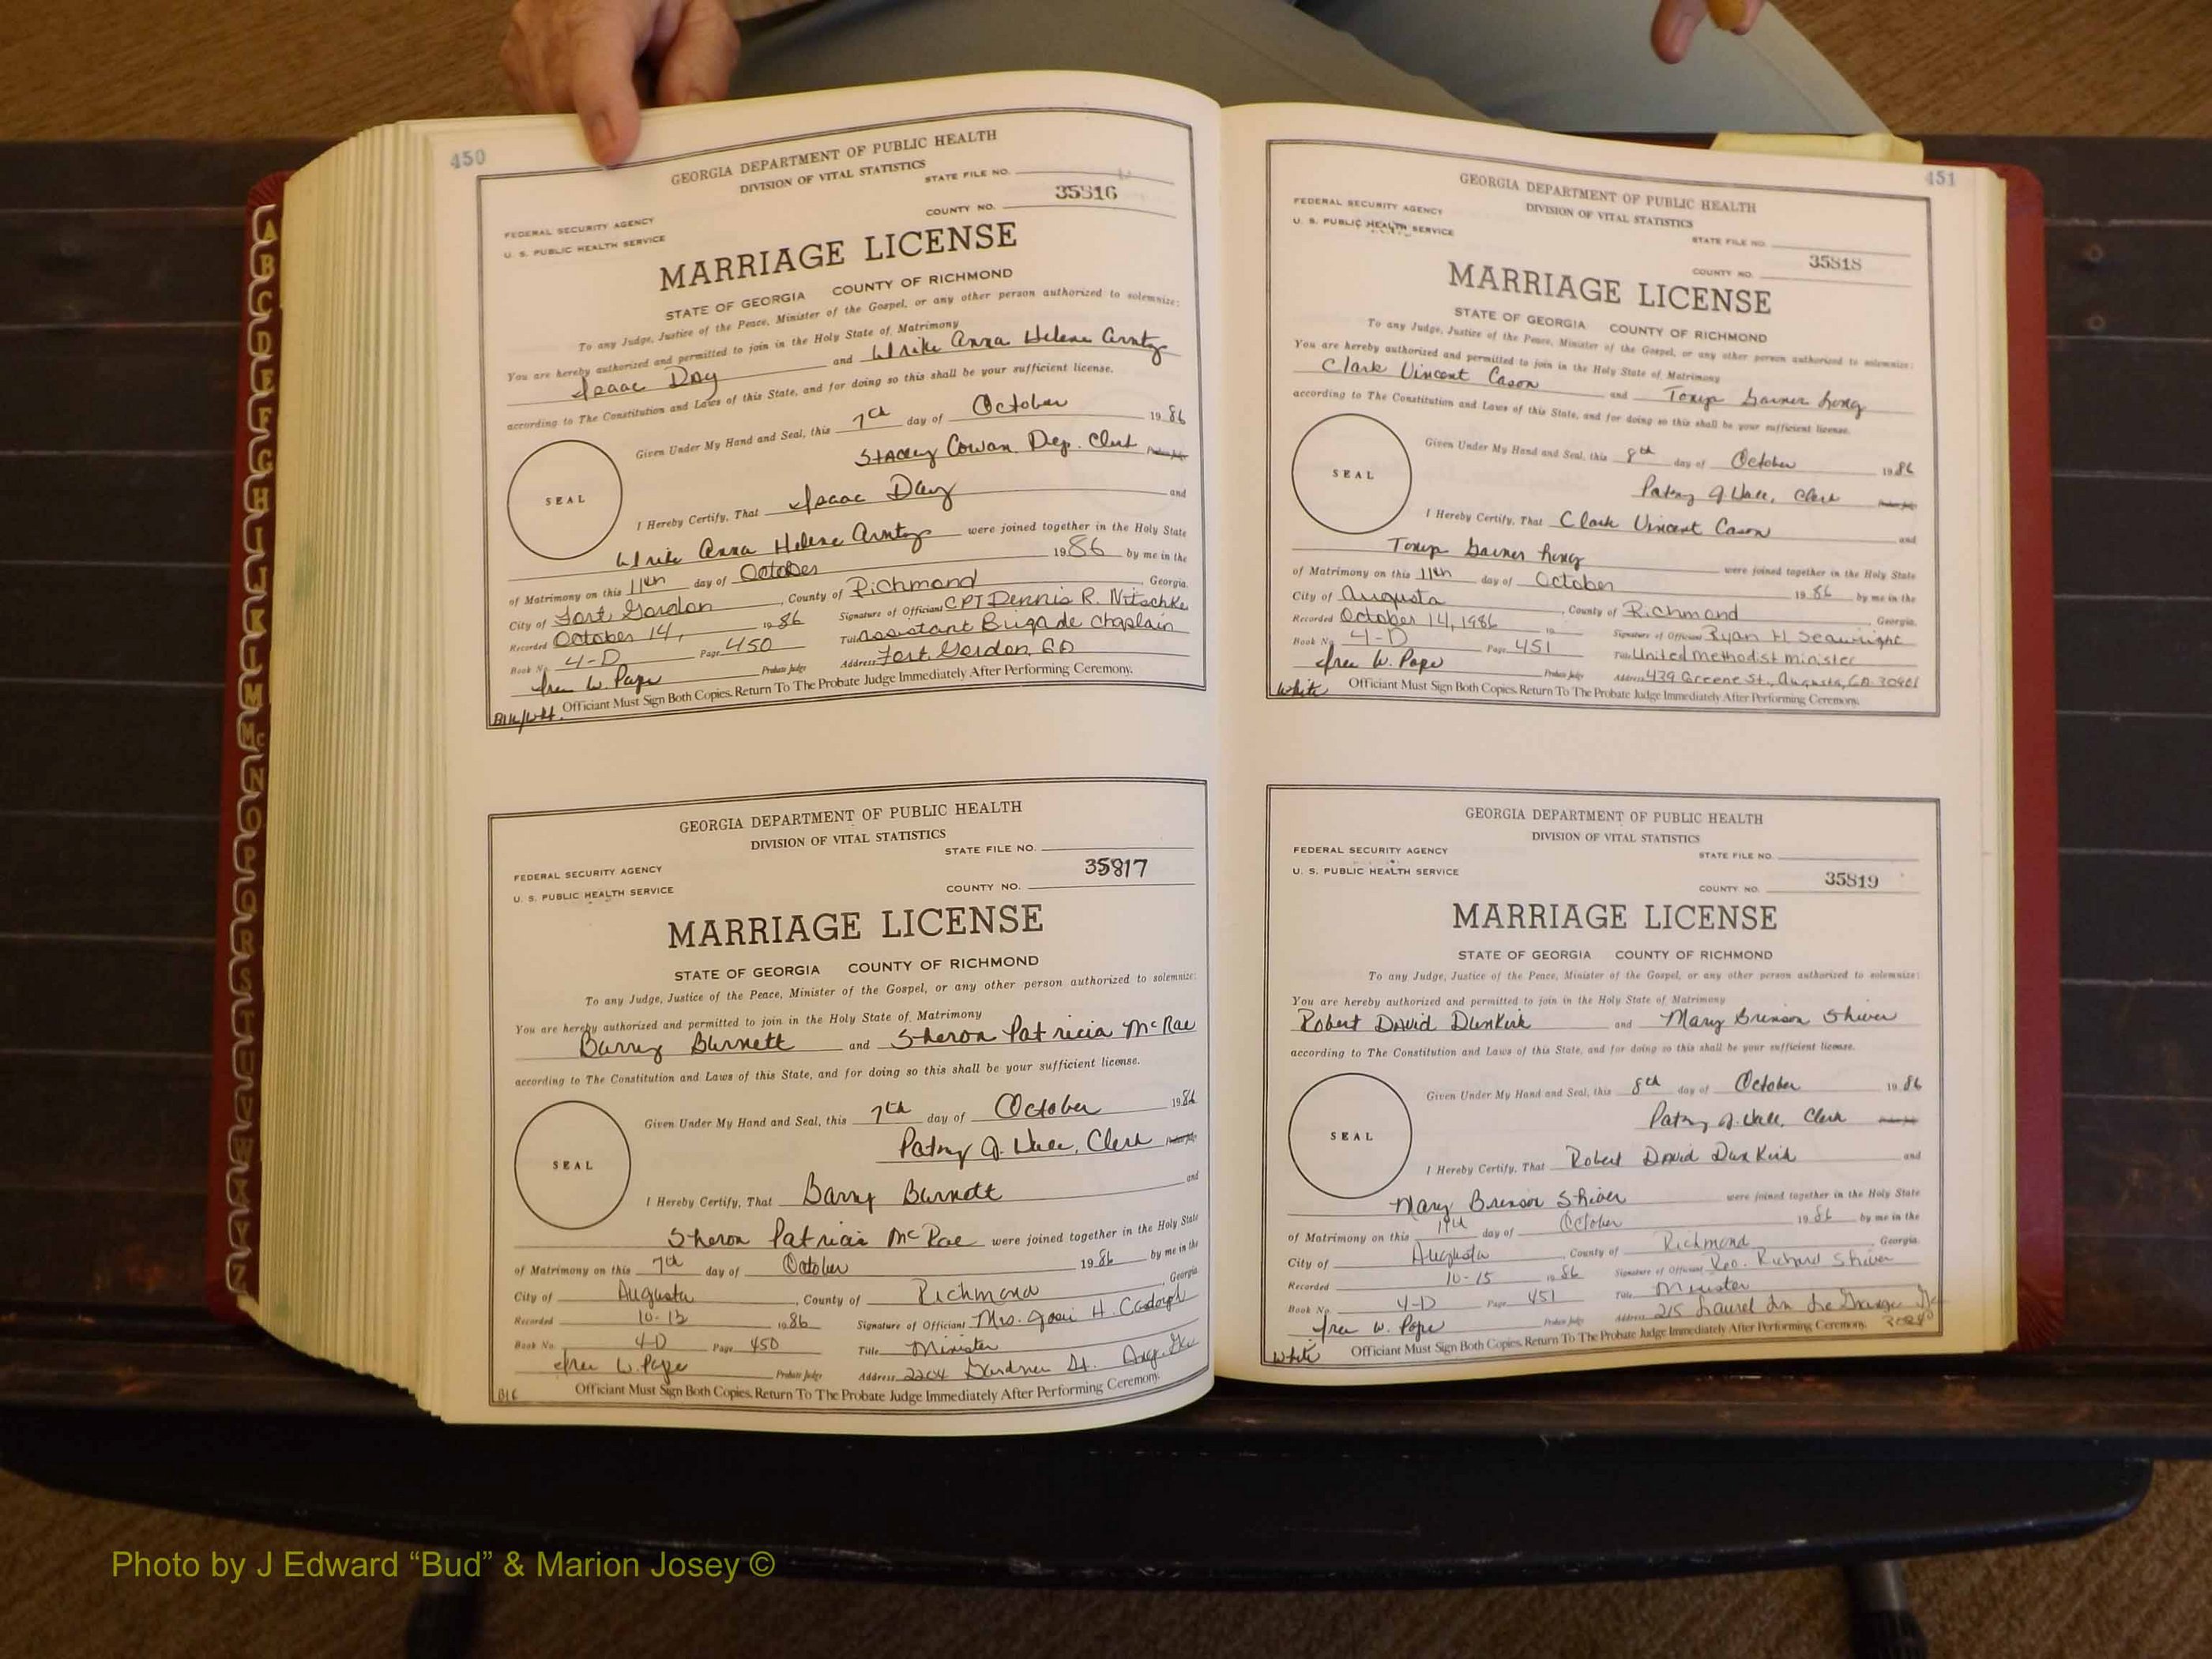 450
GEORGIA DEPARTMENT OF PUBLIC HEALTH
DIVISION OF VITAL STATISTICS
STATE FILE NO.
35816
FEDERAL SECURITY AGENCY
COUNTY NO.
U. S. PUBLIC HEALTH SERVICE
MARRIAGE LICENSE
STATE OF GEORGIA COUNTY OF RICHMOND
To any Judge, Justice of the Peace, Minister of the Gospel, or any other person authorized to solemnize:
You are hereby authorized and permitted to join in the Holy State of Matrimony
Isaac Day and Ulrike Anna Helene Arntz
according to The Constitution and Laws of this State, and for doing so this shall be your sufficient license.
Given Under My Hand and Seal, this 7th day of October 1986
Stacey Cowan Dep. Clerk Probate Judge
SEAL
I Hereby Certify, That Isaac Day and
Ulrike Anna Helene Arntz were joined together in the Holy State
of Matrimony on this 11th day of October 1986 by me in the
City of Fort Gordon, County of Richmond, Georgia.
Recorded October 14, 1986 Signature of Official CPT Dennis R. Nitschke
Book No. 4-D Page 450 Title Assistant Brigade Chaplain
W. Pope Probate Judge Address Fort Gordon, GA
Blk/Wht. Officiant Must Sign Both Copies. Return To The Probate Judge Immediately After Performing Ceremony.
GEORGIA DEPARTMENT OF PUBLIC HEALTH
DIVISION OF VITAL STATISTICS
STATE FILE NO.
35817
FEDERAL SECURITY AGENCY
COUNTY NO.
U. S. PUBLIC HEALTH SERVICE
MARRIAGE LICENSE
STATE OF GEORGIA COUNTY OF RICHMOND
To any Judge, Justice of the Peace, Minister of the Gospel, or any other person authorized to solemnize:
You are hereby authorized and permitted to join in the Holy State of Matrimony
Barry Burnett and Sheron Patricia McRae
according to The Constitution and Laws of this State, and for doing so this shall be your sufficient license.
Given Under My Hand and Seal, this 7th day of October 1986
Patsy J. Wall, Clerk Probate Judge
SEAL
I Hereby Certify, That Barry Burnett and
Sheron Patricia McRae were joined together in the Holy State
of Matrimony on this 7th day of October 1986 by me in the
City of Augusta, County of Richmond, Georgia
Recorded 10-13 1986 Signature of Official Mrs. H.
Book No. 4-D Page 450 Title Minister
W. Pope Probate Judge Address 2204 Gardner St. Aug. Ga
Blk Officiant Must Sign Both Copies. Return To The Probate Judge Immediately After Performing Ceremony.
451
GEORGIA DEPARTMENT OF PUBLIC HEALTH
DIVISION OF VITAL STATISTICS
FEDERAL SECURITY AGENCY
U. S. PUBLIC HEALTH SERVICE
STATE FILE NO.
35818
COUNTY NO.
MARRIAGE LICENSE
STATE OF GEORGIA COUNTY OF RICHMOND
To any Judge, Justice of the Peace, Minister of the Gospel, or any other person authorized to solemnize:
You are hereby authorized and permitted to join in the Holy State of Matrimony
Clark Vincent Cason and Tonya Garner Long
according to The Constitution and Laws of this State, and for doing so this shall be your sufficient license.
Given Under My Hand and Seal, this 8th day of October 1986
Patsy J. Wall, Clerk Probate Judge
SEAL
I Hereby Certify, That Clark Vincent Cason and
Tonya Garner Long were joined together in the Holy State
of Matrimony on this 11th day of October 1986 by me in the
City of Augusta, County of Richmond Georgia.
Recorded October 14, 1986 19 Signature of Official Ryan H Seawright
Book No. 4-D Page 451 Title United Methodist minister
W. Pope Probate Judge Address 439 Greene St., Augusta, GA. 30901
White Officiant Must Sign Both Copies. Return To The Probate Judge Immediately After Performing Ceremony.
GEORGIA DEPARTMENT OF PUBLIC HEALTH
DIVISION OF VITAL STATISTICS
FEDERAL SECURITY AGENCY
STATE FILE NO.
U. S. PUBLIC HEALTH SERVICE
35819
COUNTY NO.
MARRIAGE LICENSE
STATE OF GEORGIA COUNTY OF RICHMOND
To any Judge, Justice of the Peace, Minister of the Gospel, or any other person authorized to solemnize:
You are hereby authorized and permitted to join in the Holy State of Matrimony
Robert David Dunkirk and Mary Brenson Shiver
according to The Constitution and Laws of this State, and for doing so this shall be your sufficient license.
Given Under My Hand and Seal, this 8th day of October 1986
Patsy J. Wall, Clerk Probate Judge
SEAL
I Hereby Certify, That Robert David Dunkirk and
Mary Brenson Shiver were joined together in the Holy State
of Matrimony on this 11th day of October 1986 by me in the
City of Augusta, County of Richmond, Georgia.
Recorded 10-15 1986 Signature of Official Rev. Richard Shiver
Book No. 4-D Page 451 Title Minister
W. Pope Probate Judge Address 215 Laurel Ln La Grange Ga
White Officiant Must Sign Both Copies. Return To The Probate Judge Immediately After Performing Ceremony. 30240
A
B
C
D
E
F
G
H
I
J
K
L
M
Mc
N
O
P
Q
R
S
T
U
V
W
X
Y
Z
Photo by J Edward “Bud” & Marion Josey ©